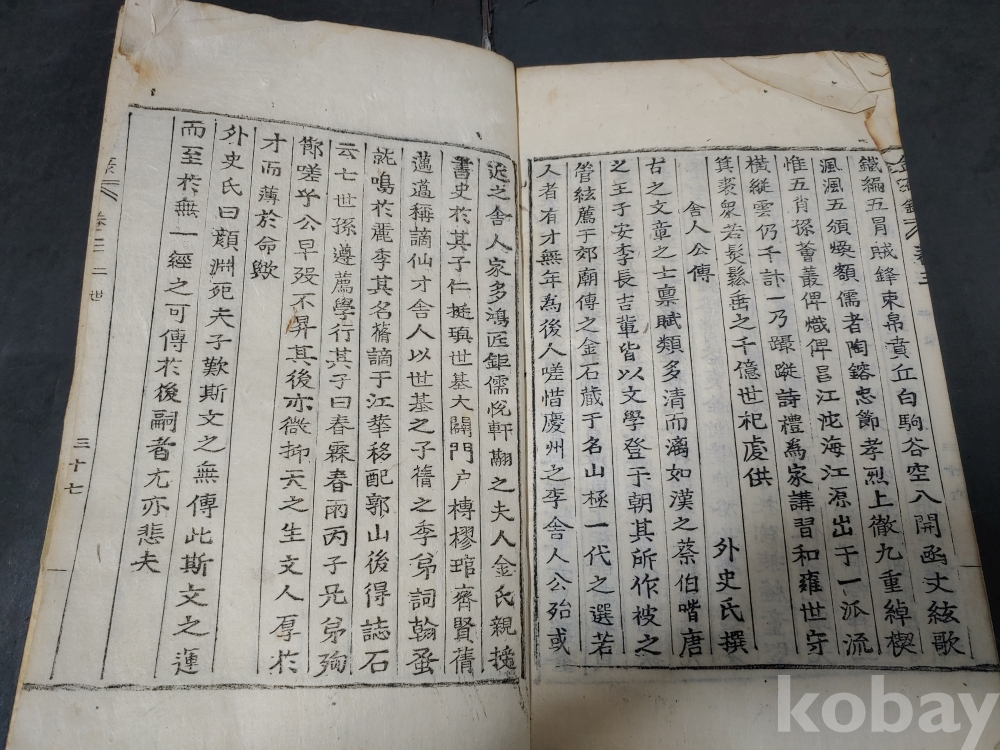 鐵編五冒賊鋒束帛賁丘白駒谷空八開函丈絃歌
渢渢五頒煥額儒者陶鎔忠節孝烈上徹九重綽楔
惟五肖孫蕃叢俾熾俾昌江沱海江源出于一派流
橫縱雲仍千計一乃躡蹤詩禮為家講習和雍世守
箕裘衆若髮鬆垂之千億世祀虔供
外史氏撰
舍人公傳
古之文章之士禀賦類多清而漓如漢之蔡伯喈唐
之王子安李長吉輩皆以文學登于朝其所作被之
管絃薦于郊廟傳之金石蔵于名山極一代之選若
人者有才無年為後人嗟惜慶州之李舍人公殆或
近之舍人家多鴻匠鉅儒悅軒翮之夫人金氏親授
書史於其子仁挺瑱世基大闢門户榑樛琯齊賢蒨
薖薖稱謫仙才舍人以世基之子蒨之季弟詞翰蚤
就鳴於麗季其名簷謫于江華移配郭山後得誌石
云七世孫遵薦學行其子曰春霖春雨丙子兄弟殉
節嗟乎公早歿不昇其後亦微抑天之生文人厚於
才而薄於命歟
外史氏曰顔淵死夫子歎斯文之無傳此斯文之運
而至於無一經之可傳於後嗣者尤亦悲夫
卷之三 二世
三十七
kobay